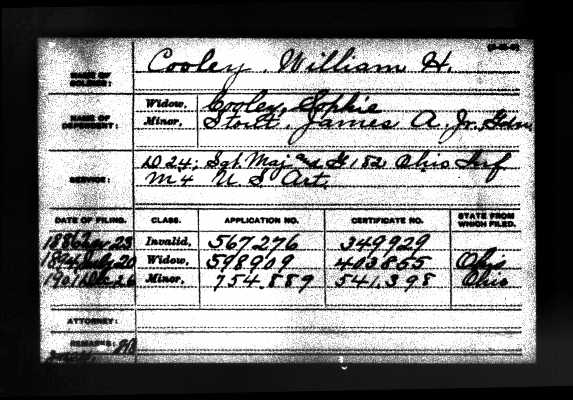 NAME OF SOLDIER: Cooley, William H.
NAME OF DEPENDENT: Widow, Cooley, Sophie
Minor, James A. Jr. Gdn
SERVICE: D 24; Sgt. Maj and G 182 Ohio Inf
M 4 U S Art.
DATE OF FILING. CLASS. APPLICATION NO. CERTIFICATE NO. STATE FROM WHICH FILED.
1886 23 Invalid, 567,276 349929
July 20 Widow, 598909 403855 Ohio
1901 Dec 26 Minor, 754,889 541,398 Ohio
ATTORNEY:
REMARKS: